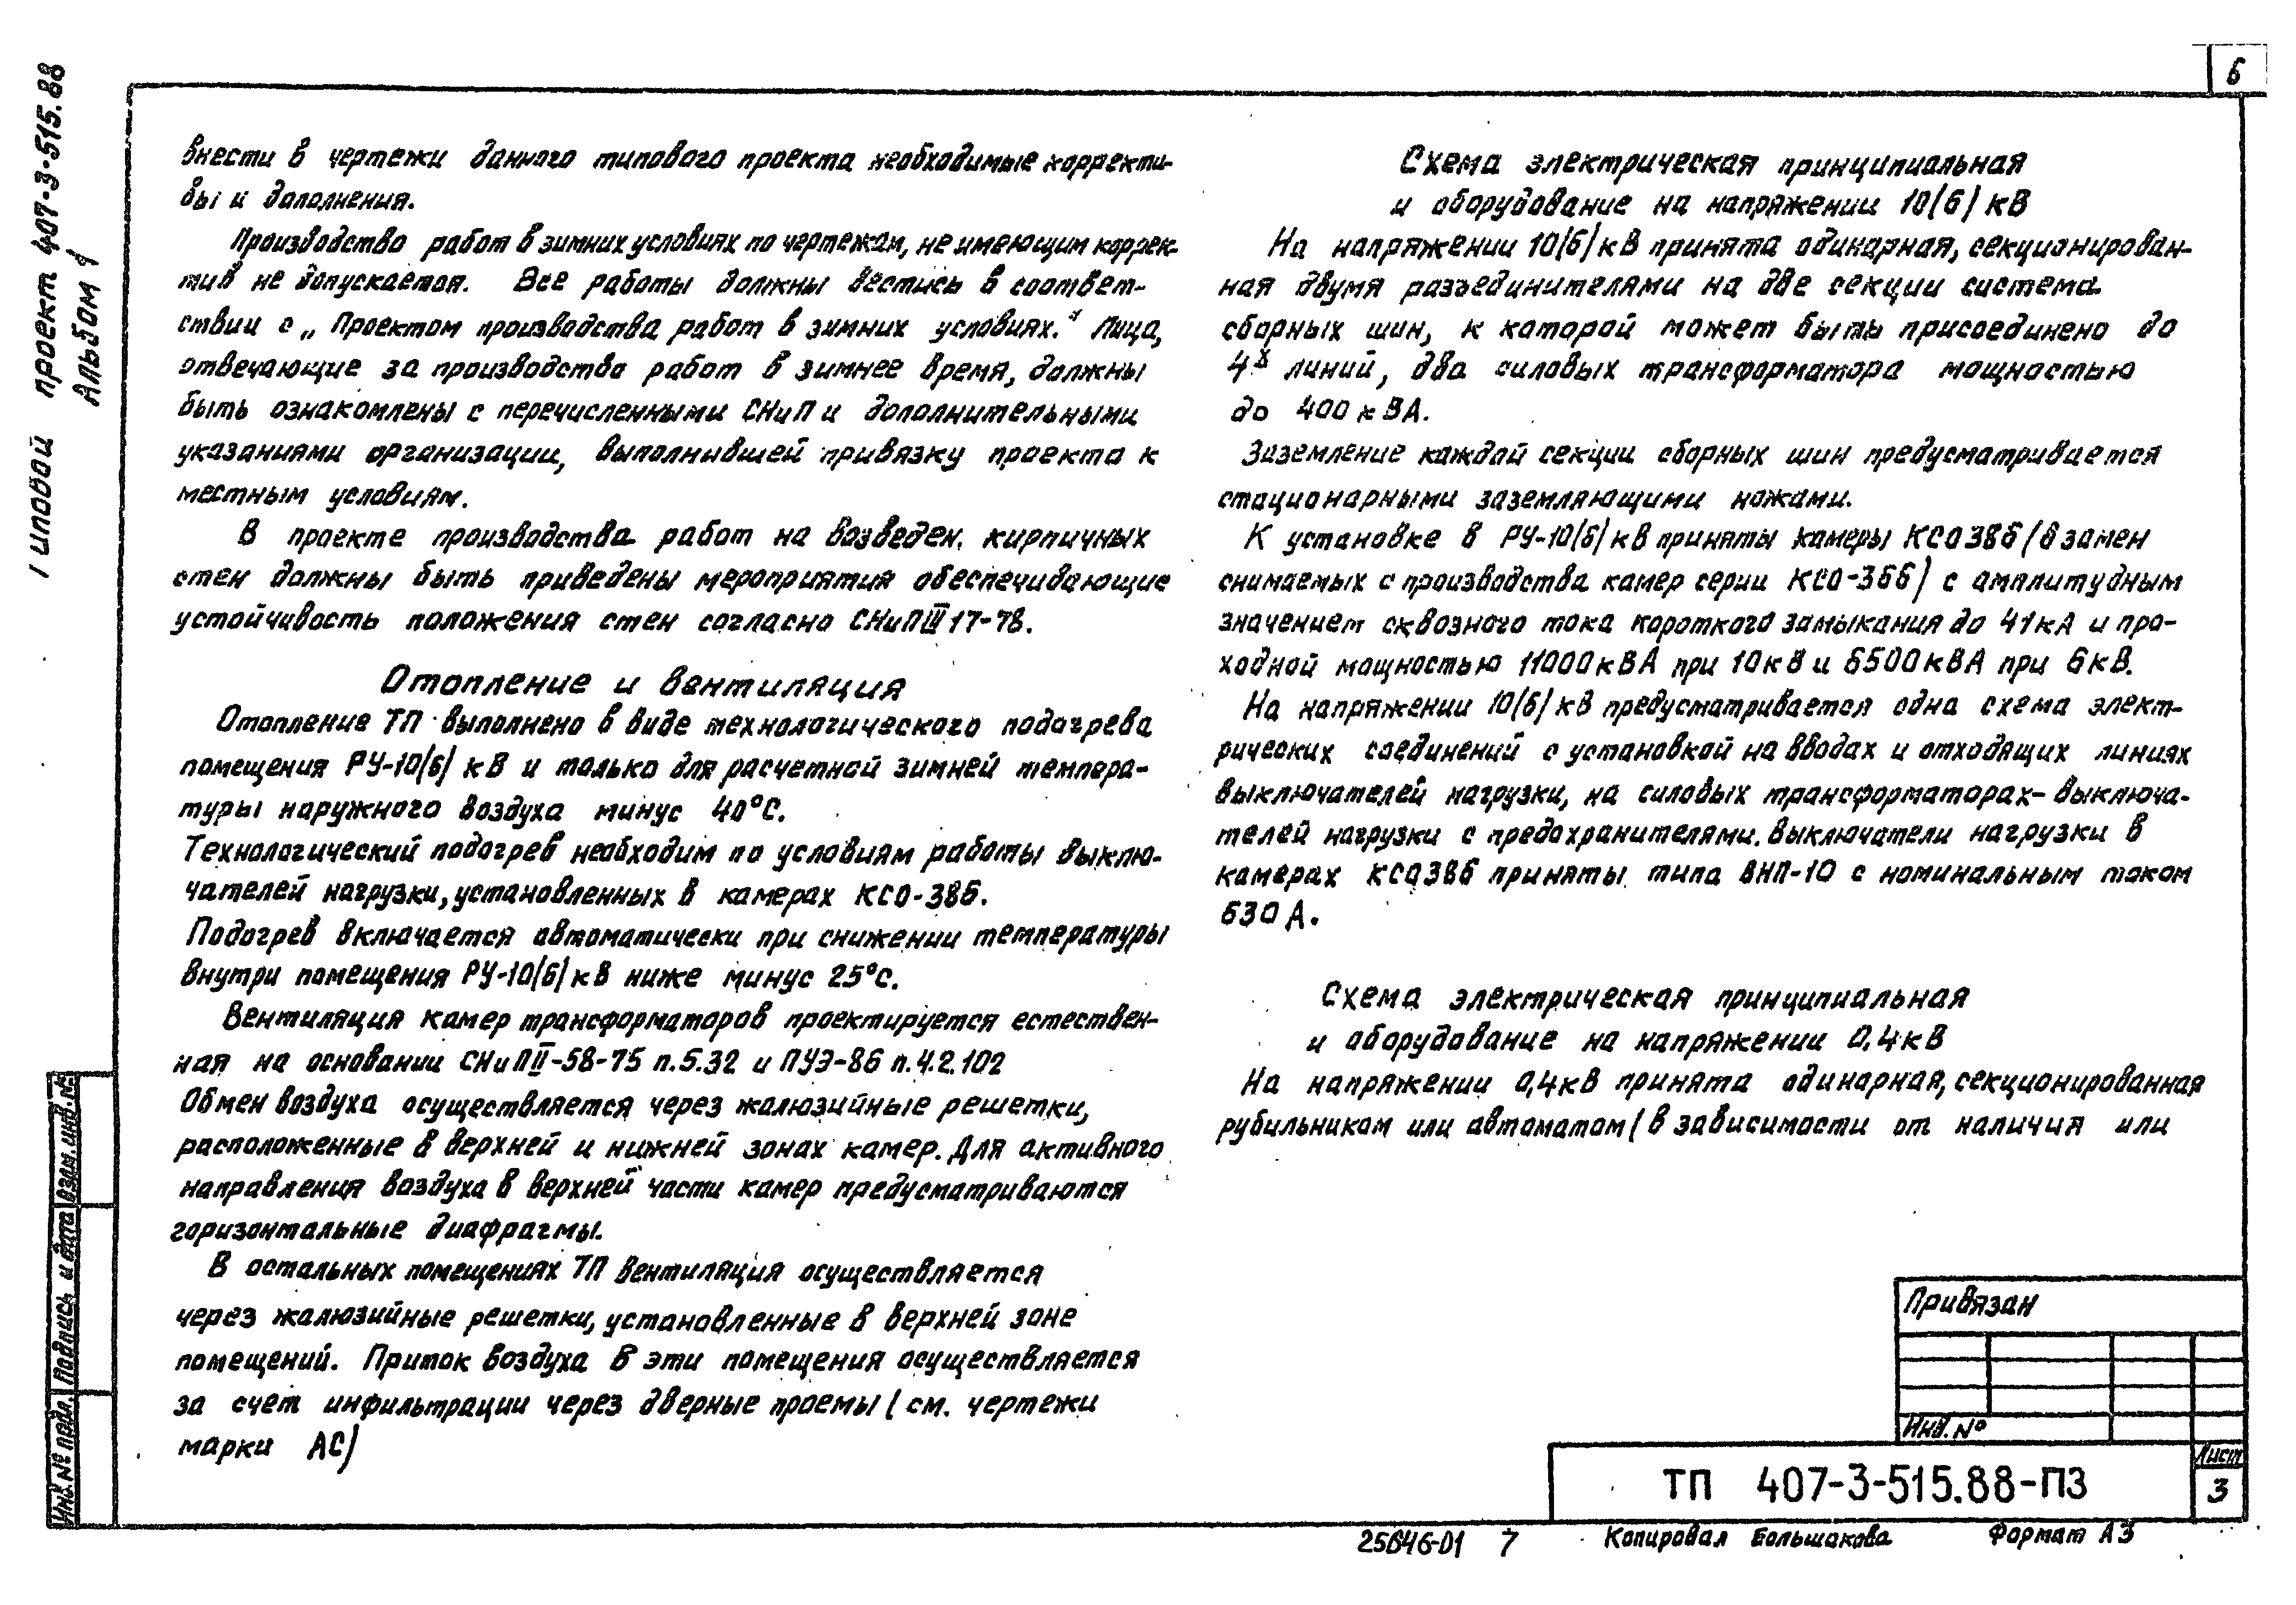 6
Типовой проект 407-3-515.88
Альбом 1
внести в чертежи данного типового проекта необходимые корректи-
вы и дополнения.
Производство работ в зимних условиях по чертежам, не имеющим коррек-
тив не допускается. Все работы должны вестись в соответ-
ствии с „Проектом производства работ в зимних условиях." Лица,
отвечающие за производства работ в зимнее время, должны
быть ознакомлены с перечисленными СНиП и дополнительными
указаниями организации, выполнившей привязку проекта к
местным условиям.
В проекте производства работ на возведен. кирпичных
стен должны быть приведены мероприятия обеспечивающие
устойчивость положения стен согласно СНиП III 17-78.
Отопление и вентиляция
Отопление ТП выполнено в виде технологического подогрева
помещения РУ-10(6) кВ и только для расчетной зимней темпера-
туры наружного воздуха минус 40°С.
Технологический подогрев необходим по условиям работы выклю-
чателей нагрузки, установленных в камерах КСО-386.
Подогрев включается автоматически при снижении температуры
внутри помещения РУ-10(6) кВ ниже минус 25°С.
Вентиляция камер трансформаторов проектируется естествен-
ная на основании СНиП II-58-75 п.5.32 и ПУЭ-86 п.4.2.102
Обмен воздуха осуществляется через жалюзийные решетки,
расположенные в верхней и нижней зонах камер. Для активного
направления воздуха в верхней части камер предусматриваются
горизонтальные диафрагмы.
В остальных помещениях ТП вентиляция осуществляется
через жалюзийные решетки, установленные в верхней зоне
помещений. Приток воздуха в эти помещения осуществляется
за счет инфильтрации через дверные проемы (см. чертежи
марки АС)
Схема электрическая принципиальная
и оборудование на напряжении 10(6) кВ
На напряжении 10(6) кВ принята одинарная, секционирован-
ная двумя разъединителями на две секции система
сборных шин, к которой может быть присоединено до
4х линий, два силовых трансформатора мощностью
до 400 кВА.
Заземление каждой секции сборных шин предусматривается
стационарными заземляющими ножами.
К установке в РУ-10(6) кВ приняты камеры КСО386 (взамен
снимаемых с производства камер серии КСО-366) с амплитудным
значением сквозного тока короткого замыкания до 41кА и про-
ходной мощностью 11000кВА при 10кВ и 6500кВА при 6кВ.
На напряжении 10(6) кВ предусматривается одна схема элект-
рических соединений с установкой на вводах и отходящих линиях
выключателей нагрузки, на силовых трансформаторах-выключа-
телей нагрузки с предохранителями. Выключатели нагрузки в
камерах КСО386 приняты типа ВНП-10 с номинальным током
630 А.
Схема электрическая принципиальная
и оборудование на напряжении 0,4кВ
На напряжении 0,4кВ принята одинарная, секционированная
рубильником или автоматом (в зависимости от наличия или
Привязан
Инв. №
ТП 407-3-515.88-ПЗ
Лист
3
Инв. № подл.
Подпись и дата
Взам. инв. №
25646-01 7
Копировал Большакова
Формат А3